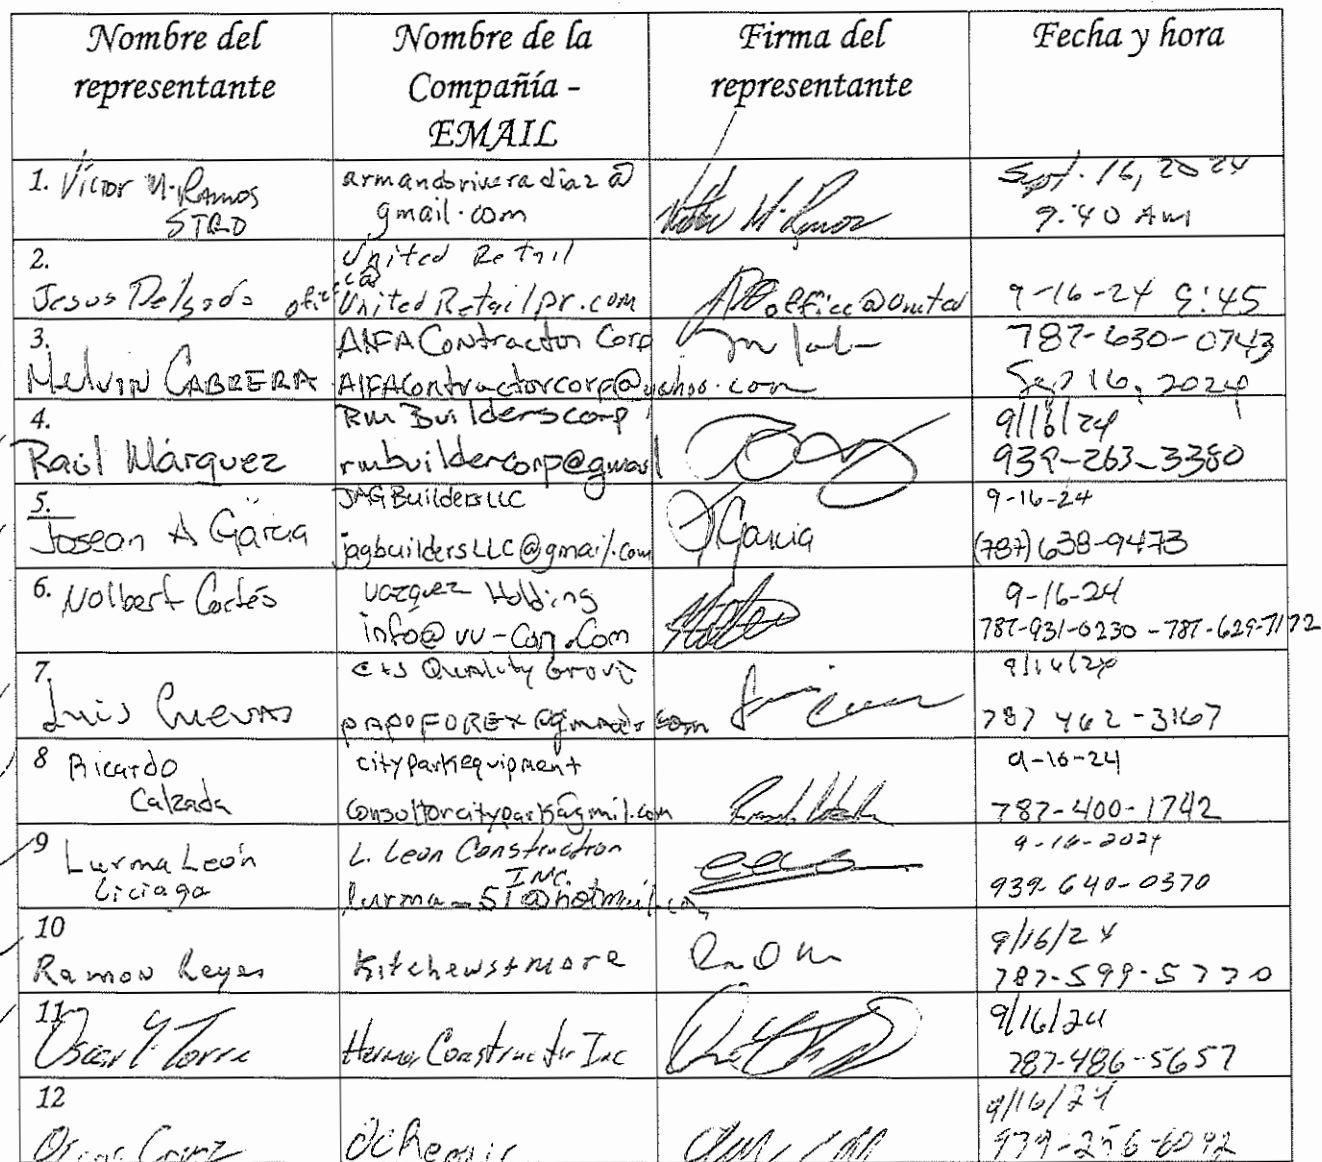 Nombre del representante
Nombre de la Compañía - EMAIL
Firma del representante
Fecha y hora
1. Víctor M. Ramos
STRD
armandoriveradiaz@
gmail.com
Victor M. Ramos
Sept. 16, 2024
9:40 AM
2.
Jesus Delgado
United Retail
office@
UnitedRetailpr.com
office@United
9-16-24 9:45
3.
Melvin CABRERA
AlFA Contractor Corp
AlFAContractorcorp@yahoo.com
787-630-0743
Sep 16, 2024
4.
Raúl Márquez
RM Builders corp
rmbuildercorp@gmail
9/16/24
939-263-3380
5.
Josean A García
JAG Builders LLC
jagbuildersLLC@gmail.com
J Garcia
9-16-24
(787) 638-9473
6. Nolbert Cortés
Vazquez Holding
info@vv-con.com
9-16-24
787-931-0230 - 787-629-7172
7.
Luis Cuevas
C+S Quality Group
9/16/24
787 462-3167
8 Ricardo
Calzada
cityparkequipment
Consultorcitypark@gmil.com
9-16-24
787-400-1742
9 Lurma León
Liciaga
L. Leon Construction
INC.
lurma_51@hotmail.com
9-16-2024
939-640-0370
10
Ramon Reyes
Kitchenstmore
9/16/24
787-599-5770
11
Oscar Y Torre
Construction Inc
9/16/24
787-486-5657
12
9/16/24